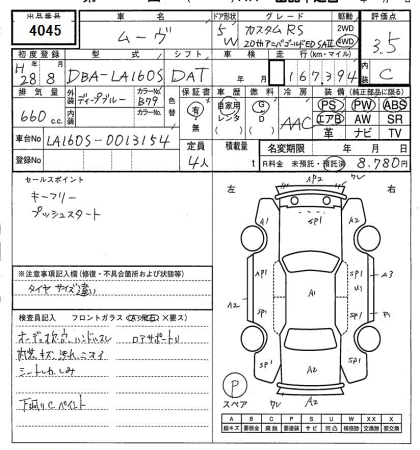 出品番号 車名 ドア形状 グレード 駆動 評価点
4045 ムーヴ 5 W カスタム RS 20thアニバゴールドED SAⅡ 2WD 4WD 3.5
初度登録 型式 シフト 車検 走行(km・マイル) 内装
H 28年 8月 DBA-LA160S DAT 年 月 167,394 C
排気量 外装色 カラーNo. 色替 保証書 車歴 燃料 冷房 装備(純正部品に限る)
660 c.c. ディープブルー B79 有 無 自家用 レンタ G D AAC PS PW ABS
内装 カラーNo. エアB AW SR
革 ナビ TV
車台No LA160S-0013154 定員 4人 積載量 t 名変期限 年 月 日
登録No R料金 未預託・預託済 8,780円
セールスポイント
キーフリー
プッシュスタート
※注意事項記入欄(修復・不具合箇所および状態等)
タイヤ サイズ違い
検査員記入 フロントガラス(A・飛石・X要ス)
シートしわ、しみ
下廻りC、ペイント
左 右
AP2 ワレ
A1 SP1 A1
SP1 SP1 A3
A2 A1 U1
SP1 SP1 P1
A2 SP1
P スペア ワレ A2
A B C P S U W X XX
線キズ 要板金 腐蝕 要塗装 サビ 凹凸 補修跡 要交換 交換跡